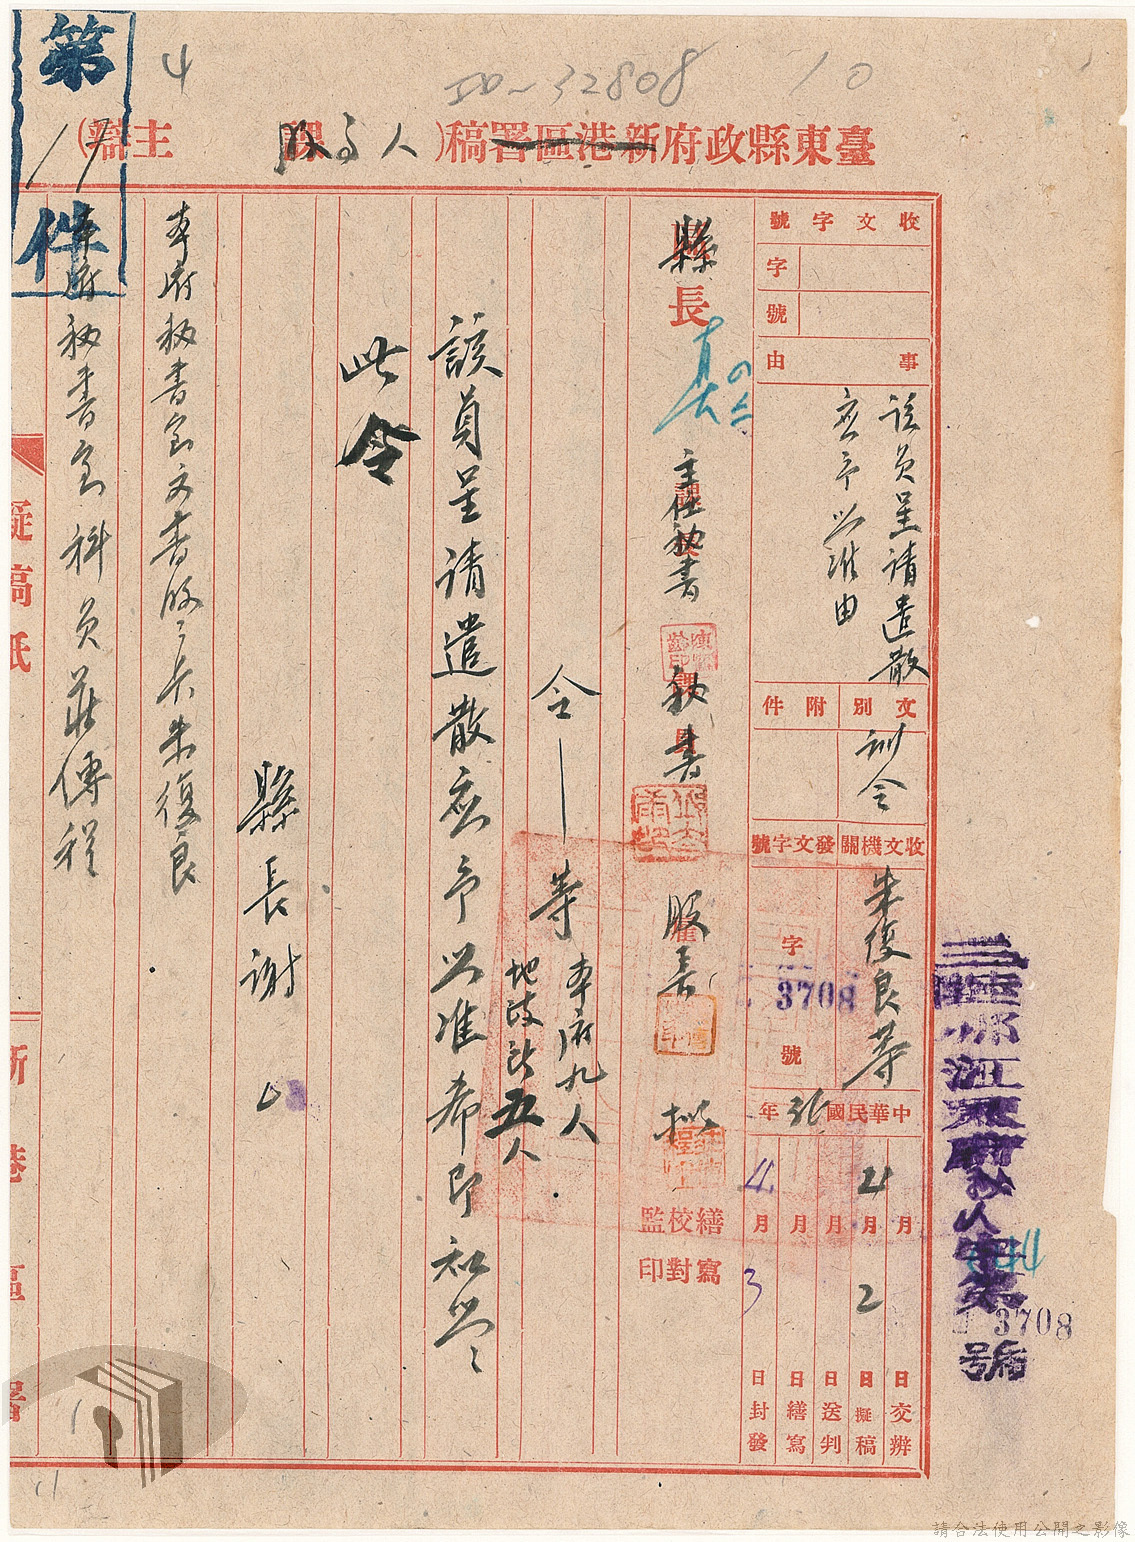 4
10
臺東縣政府新港區署稿(人事股課 主辦)
第
17
件
收文字號
字
號
事由
該員呈請遣散
應予照准由
文別
附件
訓令
收文機關
發文字號
朱復良等
字
3708
號
中華民國 年
月 日交辦
4月2日擬稿
月 日送判
月 日繕寫
4月3日封發
縣長
主任秘書
秘書
股長
擬
繕寫
校對
監印
令
等
本府九人
地政科五人
該員呈請遣散應予照准希即知照
此令
縣長謝
本府秘書室文書股股長朱復良
本府秘書室科員莊傳程
擬稿紙
新港區署
號
3708
請合法使用公開之影像